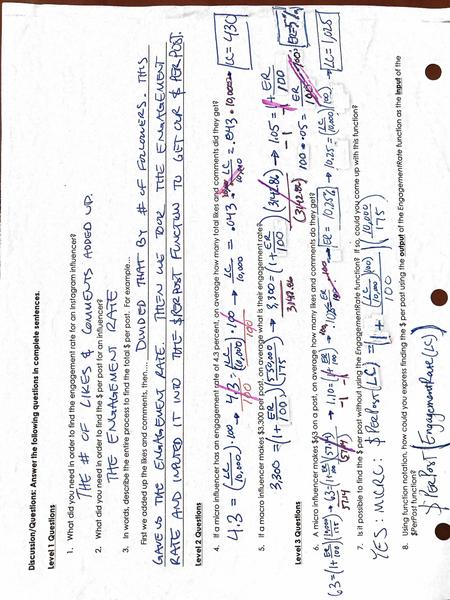 Discussion/Questions: Answer the following questions in complete sentences.
Level 1 Questions
1. What did you need in order to find the engagement rate for an Instagram influencer?
THE # OF LIKES & COMMENTS ADDED UP.
2. What did you need in order to find the $ per post for an influencer?
THE ENGAGEMENT RATE
3. In words, describe the entire process to find the total $ per post. For example...
First we added up the likes and comments, then.... DIVIDED THAT BY # OF FOLLOWERS. THIS
GAVE US THE ENGAGEMENT RATE. THEN WE TOOK THE ENGAGEMENT
RATE AND INPUTED IT INTO THE $PERPOST FUNCTION TO GET OUR $ PER POST.
Level 2 Questions
4. If a micro influencer has an engagement rate of 4.3 percent, on average how many total likes and comments did they get?
4.3 = (LC/10,000)·100 → 4.3/100 = (LC/10,000)·100/100 → LC/10,000 = .043 → LC/10,000 = .043·10,000 → LC = 430
5. If a macro influencer makes $3,300 per post, on average what is their engagement rate?
3,300 = (1 + ER/100)(550,000/175) → 3,300 = (1 + ER/100)(3142.86) → 1.05 = 1 + ER/100
3142.86 (3142.86) -1 -1
100·.05 = ER/100·100 ER = 5%
Level 3 Questions
6. A micro influencer makes $63 on a post, on average how many likes and comments do they get?
63 = (1 + ER/100)(10,000/175) → 63 = (1 + ER/100)(57.14) → 1.10 = 1 + ER/100 → ER = 10.25% → 10.25 = (LC/10,000)(100) → LC = 1,025
57.14 (57.14) -1 -1
7. Is it possible to find the $ per post without using the EngagementRate function? If so, could you come up with this function?
YES: MICRO: $PerPost(LC) = (1 + (LC/10,000)(100)/100)(10,000/175)
8. Using function notation, how could you express finding the $ per post using the output of the EngagementRate function as the input of the
$PerPost function?
$PerPost(EngagementRate(LC))